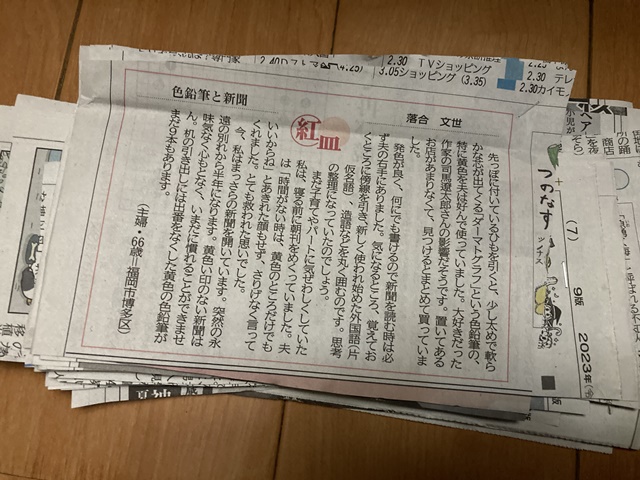 2.30 TVショッピング
3.05ショッピング (3.35)
2.30 テレ
2.30カイモ
色鉛筆と新聞
紅皿
落合 文世
先っぽに付いているひもを引くと、少し太めで軟ら
かな芯が出てくる「ダーマトグラフ」という色鉛筆の、
特に黄色を夫は好んで使っていました。大好きだった
作家の司馬遼太郎さんの影響だそうです。置いてある
お店があまりなくて、見つけるとまとめて買っていま
した。
発色が良く、何にでも書けるので新聞を読む時は必
ず夫の右手にありました。気になるところ、覚えてお
くところに傍線を引き、新しく使われ始めた外国語(片
仮名語)、造語などを丸く囲むのです。思考
の整理になっていたのでしょう。
まだ子育てやパートに気ぜわしくしていた
私は、寝る前に朝刊をめくっていました。夫
は「時間がない時は、黄色のところだけでも
いいからね」とあきれた顔もせず、さりげなく言って
くれました。とても救われた思いでした。
今、私はまっさらの新聞を開いています。突然の永
遠の別れから半年になります。黄色い印のない新聞は
味気なく心もとなく、いまだに慣れることができませ
ん。机の引き出しには出番をなくした黄色の色鉛筆が
まだ9本もあります。
(主婦・66歳=福岡市博多区)
つのなす
ツノナス
(7)
9版
2023年